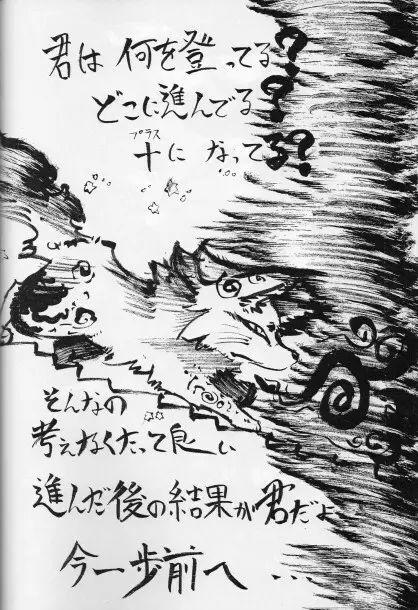 君は 何を登ってる?
どこに進んでる?
プラス
十に なってる?
そんなの
考えなくたって良い
進んだ後の結果が君だよ
今一歩前へ...